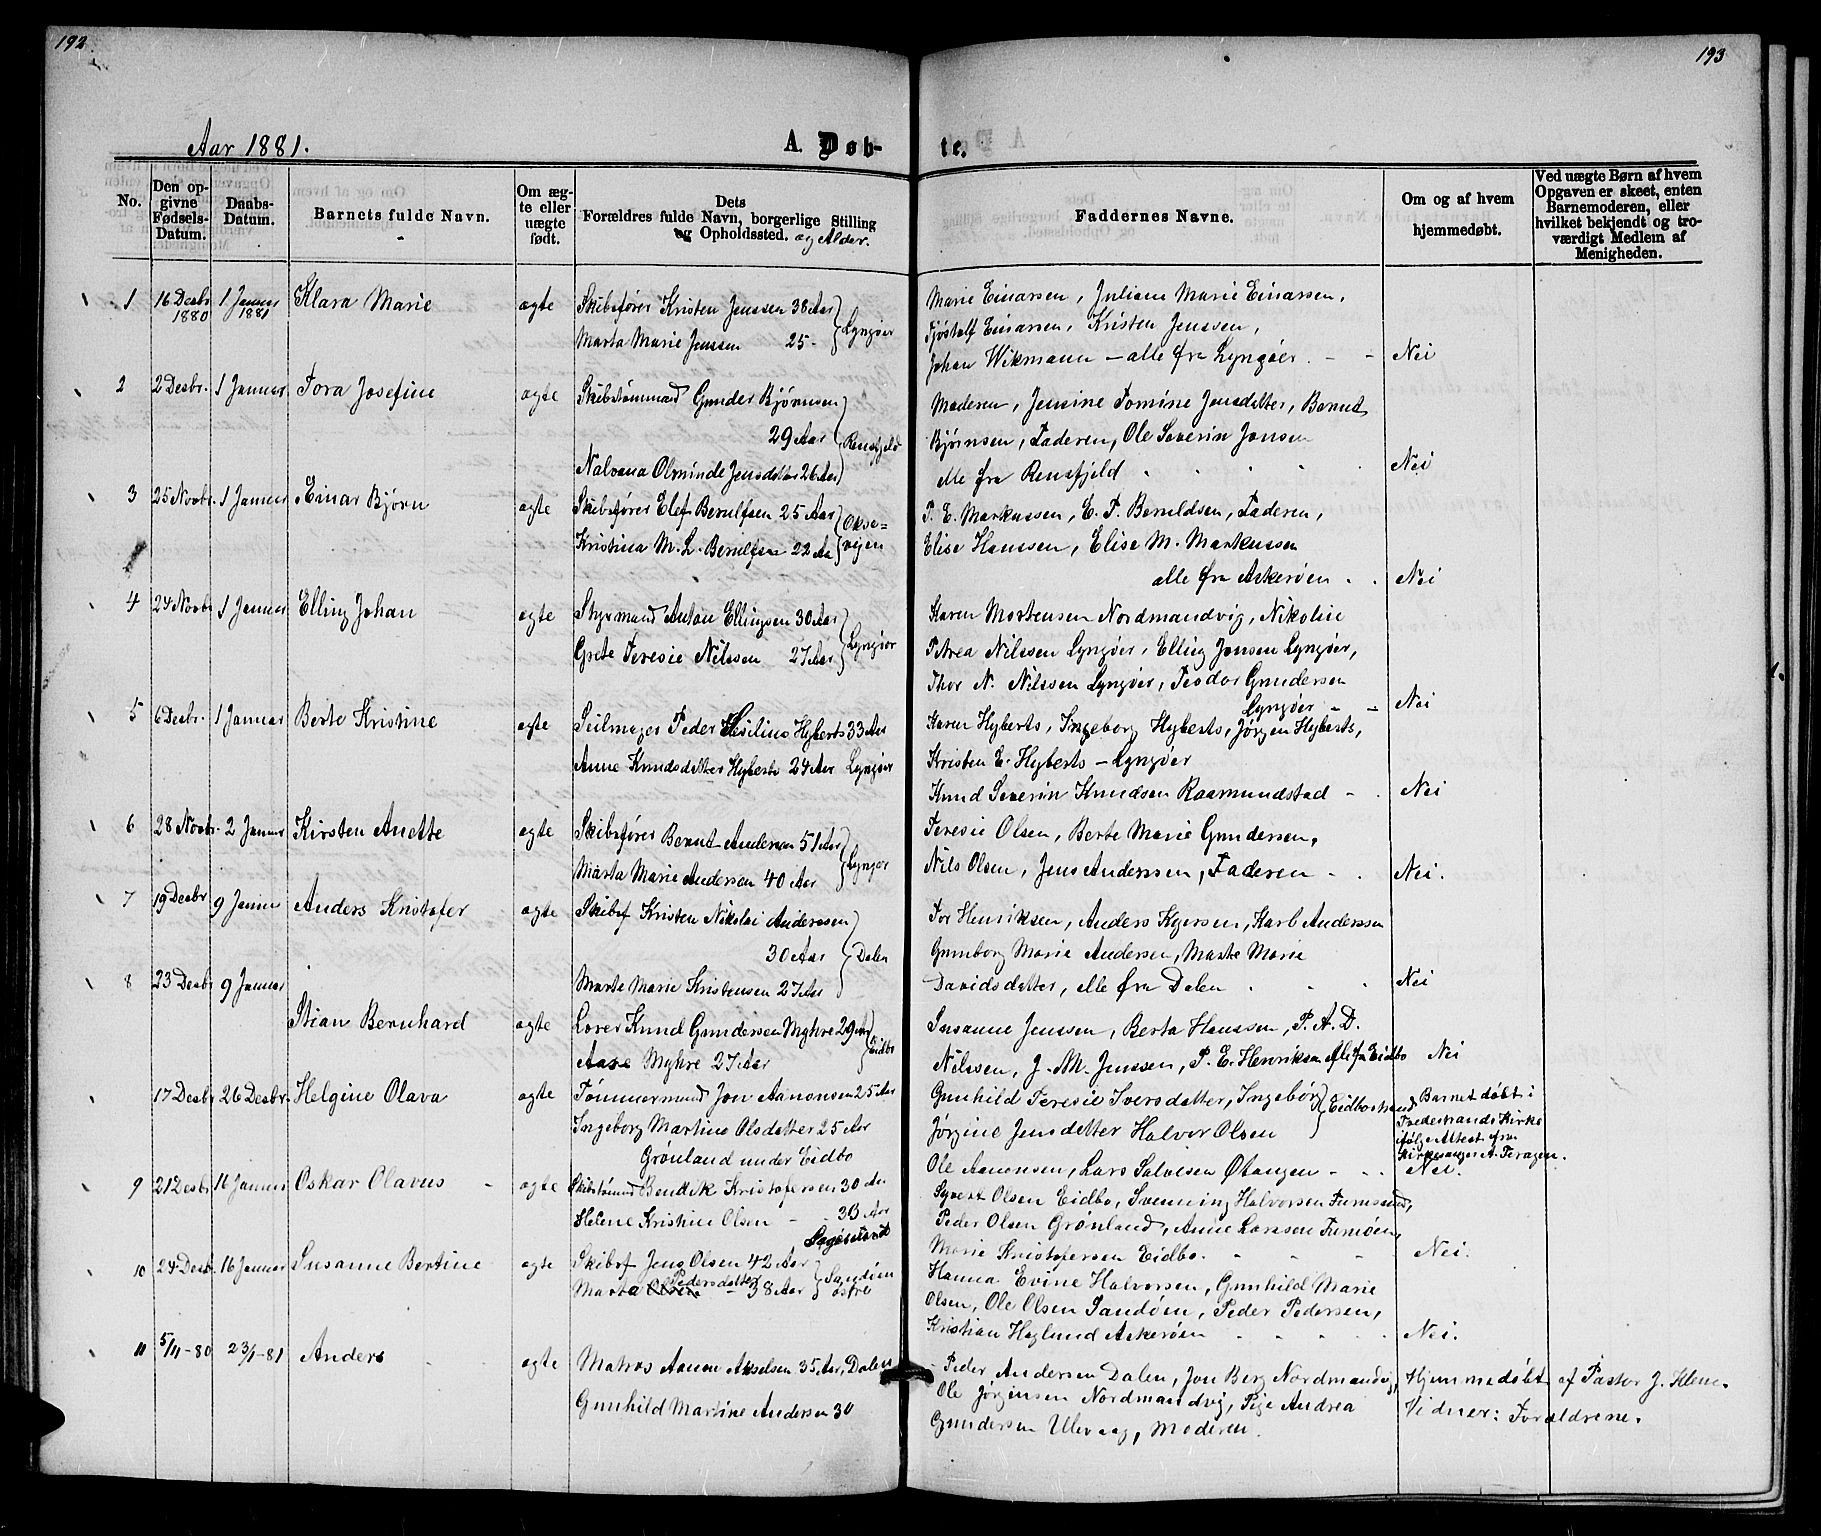 192
193
Aar 1881.
A. Døb-
te.
No.
Den op-
givne
Fødsels-
Datum.
Daabs-
Datum.
Barnets fulde Navn.
Om æg-
te eller
uægte
født.
Dets
Forældres fulde Navn, borgerlige Stilling
og Opholdssted. og Alder.
Faddernes Navne.
Om og af hvem
hjemmedøbt.
Ved uægte Børn af hvem
Opgaven er skeet, enten
Barnemoderen, eller
hvilket bekjendt og tro-
værdigt Medlem af
Menigheden.
1 16 Desbr 1880 1 Januar 1881 Klara Marie ægte Skibsfører Kristen Jenssen 38 Aar
Marta Marie Jenssen 25 - Lyngøer
Marie Einarsen, Juliane Marie Einarsen,
Tjøstolf Einarsen, Kristen Jenssen,
Johan Wikmann - alle fra Lyngøer. - - Nei
2 2 Desbr. 1 Januar Tora Josefine ægte Skibstømmand Gunder Bjørnsen
29 Aar Rensfjeld
Nalvana Olminde Jensdatter 26 Aar
Moderen, Jenine Tomine Jensdatter, Bernt
Bjørnsen, Faderen, Ole Severin Jensen
alle fra Rensfjeld Nei
3 25 Novbr. 1 Januar Einar Bjørn ægte Skibsfører Elef Berulfsen 25 Aar
Kristina M. L. Berulfsen 22 Aar Okse-
vigen
P. E. Markussen, E. T. Beruldsen, Faderen,
Elise Hanssen, Elise M. Markussen
alle fra Askerøen - . Nei
4 24 Novbr 1 Januar Elling Johan ægte Styrmand Anton Ellingsen 30 Aar
Grete Teresie Nilssen 27 Aar Lyngør
Karen Mortensen Nordmandvig, Nikoline
Petrea Nilssen Lyngøer, Elling Jensen Lyngøer,
Thor N. Nilssen Lyngøer, Teodor Gundersen
Lyngøer - - Nei
5 6 Desbr. 1 Januar Berte Kristine ægte Seilmager Peder Hyberts 33 Aar
Anne Knudsdatter Hyberts 24 Aar Lyngøer
Karen Hyberts, Ingeborg Hyberts, Jørgen Hyberts,
Kristen E. Hyberts - Lyngøer
Knud Severin Knudsen Raamundstad - . Nei
6 28 Novbr. 2 Januar Kirsten Anette ægte Skibsfører Bernt Anderson 51 Aar
Marta Marie Anderson 40 Aar Lyngør
Teresie Olsen, Berte Marie Gundersen,
Nils Olsen, Jens Anderssen, Faderen - . Nei.
7 19 Desbr 9 Januar Anders Kristofer ægte Skibsf Kristen Nikolai Anderssen
30 Aar Dalen
Marte Marie Kristensen 27 Aar
Tor Henriksen, Anders Kjersen, Karl Anderssen
Gunborg Marie Andersen, Marte Marie
Davidsdatter, alle fra Dalen Nei
8 23 Desbr 9 Januar
Stian Bernhard ægte Lorer Knud Gundersen Myhre 29 Aar
Aase Myhre 27 Aar Eidbo
Susanne Jenssen, Berta Hanssen, P. A. D.
Nilssen, J. M. Jenssen, P. E. Henriksen Alle fra Eidbo Nei
17 Desbr 26 Desbr. Helgine Olava ægte Tømmermand Jon Aanonsen 25 Aar
Ingeborg Martine Olsdatter 25 Aar
Grønland under Eidbo
Gunhild Teresie Iversdatter, Ingebør Eidbostrand
Jørgine Jensdatter Halvor Olsen
Ole Aanonsen, Lars Salvesen Østangen - .
Barnet døbt i
Tvedestrands Kirke
ifølge Attest fra
Kirkesanger A. Teragen.
9 21 Desbr 16 Januar Oskar Olavus - ægte Skibstømmd Bendik Kristofersen 30 Aar
Helene Kristine Olsen - - 33 Aar
Sagesund
Syvert Olsen Eidbo, Svenning Halvorsen Furøsund,
Peder Olsen Grønland, Anne Larssen Furuøen,
Marie Kristofersen Eidbo. Nei.
Nei.
10 24 Desb. 16 Januar Susanne Bertine ægte Skibsf Jens Olsen 42 Aar
Marta Pedersdatter 38 Aar Sandøen
østre
Hanna Evine Halvorsen, Gunhild Marie
Olsen, Ole Olsen Sandøen, Peder Pedersen,
Kristian Haglund Askerøen Nei.
11 5/11-80 23/1-81 Anders ægte Matros Aanon Akselsen 35 Aar, Dalen
Gunhild Martine Andersen 30
Peder Andersen Dalen, Jon Berg Nordmandvig,
Ole Jørgensen Nordmandvig, Pige Andrea
Gundersen Ulevaag, Moderen.
Hjemmedøbt af Pastor J. Klem.
Vidner: Forældrene.